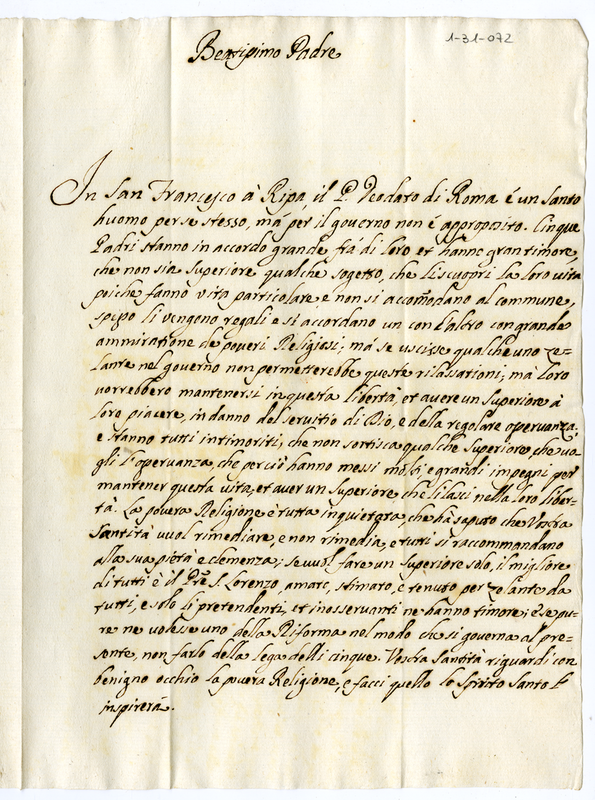 1-31-072
Beatissimo Padre
In San Francesco à Ripa, il P. Deodato di Roma é un santo
huomo per se stesso, má per il governo non é approposito. Cinque
Padri stanno in accordo grande frá di loro et hanno gran timore,
che non sia superiore qualche sogetto, che li scuopri la loro vita
poiche fanno vita particolare e non si accom̃odano al commune,
spesso li vengono regali e si accordano un con l'altro con grande
ammiratione de poveri Religiosi; má se uscisse qualche uno ze=
lante nel governo non permetterebbe queste rilassationi; má loro
vorrebbero mantenersi in questa libertá, et avere un superiore à
loro piacere, in danno del servitio di Dio, e della regolare osservanza;
e stanno tutti intimoriti, che non sortisca qualche superiore che
gli l'osservanza, che perció hanno messi e grandi impegni per
mantener questa vita, et aver un superiore che li lasci nella loro liber=
tà. La povera Religione é tutta inquietata, che há saputo che Vostra
Santitá vuol rimediare, e non rimedia, e tutti si raccommandano
alla sua pietá e clemenza; se vuol fare un superiore solo, il migliore
di tutti é il Pre S. Lorenzo, amato, stimato, e tenuto per zelante da
tutti, e solo li pretendenti, et inosservanti ne hanno timore; é se pu=
re ne volesse uno della Riforma nel modo che si governa al pre=
sente, non farlo della lega delli cinque. Vostra Santitá riguardi con
benigno occhio la povera Religione, e facci quello lo Spirito Santo
inspirerá.